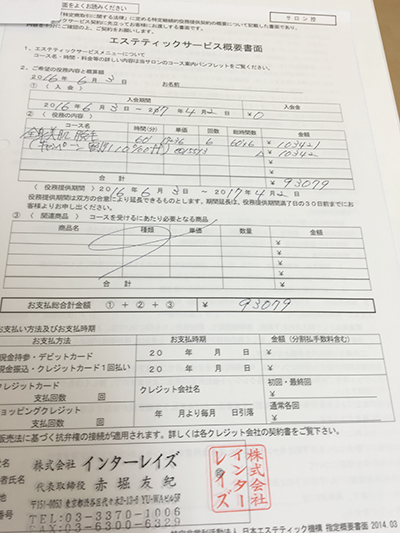 面をよくお読みください
サロン控
「特定商取引に関する法律」に定める特定継続的役務提供契約の概要について記載した書面であり、
エステティックサービス概要書面
1、エステティックサービスメニューについて
コース名・時間・料金等の詳しい内容は当サロンのコース案内パンフレットをご覧ください。
2、ご希望の役務内容と概算額
2016年 6月 3日 お名前
①（入会）
入会期間 入会金
2016年 6月 3日 ～ 2017年 4月 2日 ¥0
②（役務の内容）
コース名 時間(分) 単価 回数 総時間数 金額
60 6
合計 ¥ 93079
（役務提供期間）2016年 6月 3日 ～ 2017年 4月 2日
役務提供期間は双方の合意により延長できるものとします。期間延長は、役務提供期間満了日の30日前までにお
客様よりお申し出ください。
③（関連商品）コースを受けるにあたり必要となる商品
商品名 種類 単価 数量 金額
¥
¥
¥
¥
合計 ¥
お支払総合計金額 ①＋②＋③ ¥ 93079
お支払い方法及びお支払時期
お支払方法 お支払時期 金額（分割払手数料含む）
現金持参・デビットカード 20 年 月 日 ¥
現金振込・クレジットカード1回払い 20 年 月 日 ¥
クレジットカード クレジット会社名 初回・最終回
支払回数 回 ¥
ショッピングクレジット 年 月より毎月 日引落 通常各回
支払回数 回 ¥
販売法に基づく抗弁権の接続が適用されます。詳しくは各クレジット会社の契約書をご覧下さい。
株式会社 インターレイズ
代表取締役 赤堀友紀
〒151-0053 東京都渋谷区代々木2-13-6 YU-WAビル5F
TEL:03-3370-1006
FAX:03-6300-9279
株式会社インターレイズ
特定非営利活動法人 日本エステティック機構 指定概要書面 2014.03